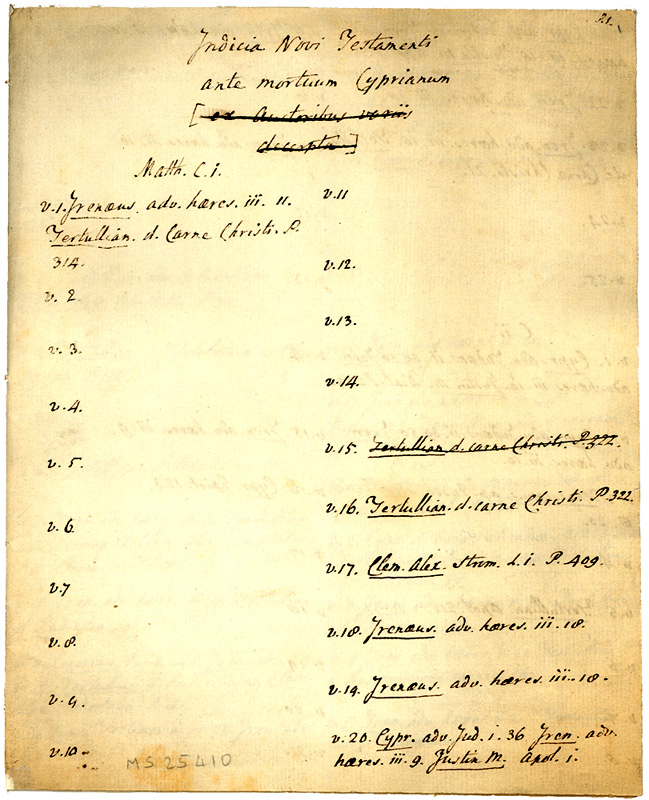 21.
Indicia Novi Testamenti
ante mortuum Cyprianum
[ex Auctoribus variis
decerpta]
Matth. C. i.
v.1. Irenæus adv. hæres. iii. 11.
Tertullian. d. Carne Christi. P.
314.
v. 2
v. 3.
v. 4.
v. 5.
v. 6
v. 7
v. 8.
v. 9.
v. 10.
v. 11
v. 12.
v. 13.
v. 14.
v. 15. Tertullian. d. carne Christi. P. 322.
v. 16. Tertullian. d. carne Christi. P. 322.
v. 17. Clem. Alex. Strom. L. i. P. 409.
v. 18. Irenæus. adv. hæres. iii. 18.
v. 19. Irenæus. adv. hæres. iii. 18.
v. 20. Cypr. adv. Jud. i. 36 Iren. adv.
hæres. iii. 9. Justin M. Apol. i.
MS 25410